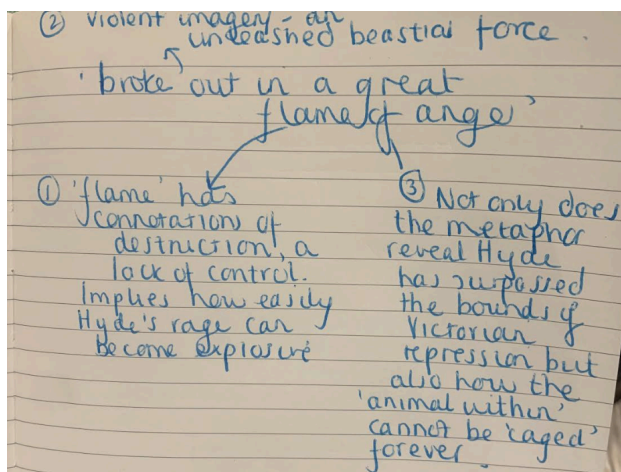 ② violent imagery - an
unleashed beastial force.
'broke' out in a great
flame of anger'
① 'flame' has
connotations of
destruction, a
lack of control.
Implies how easily
Hyde's rage can
become explosive
③ Not only does
the metaphor
reveal Hyde
has surpassed
the bounds of
Victorian
repression but
also how the
'animal within'
cannot be 'caged'
forever.